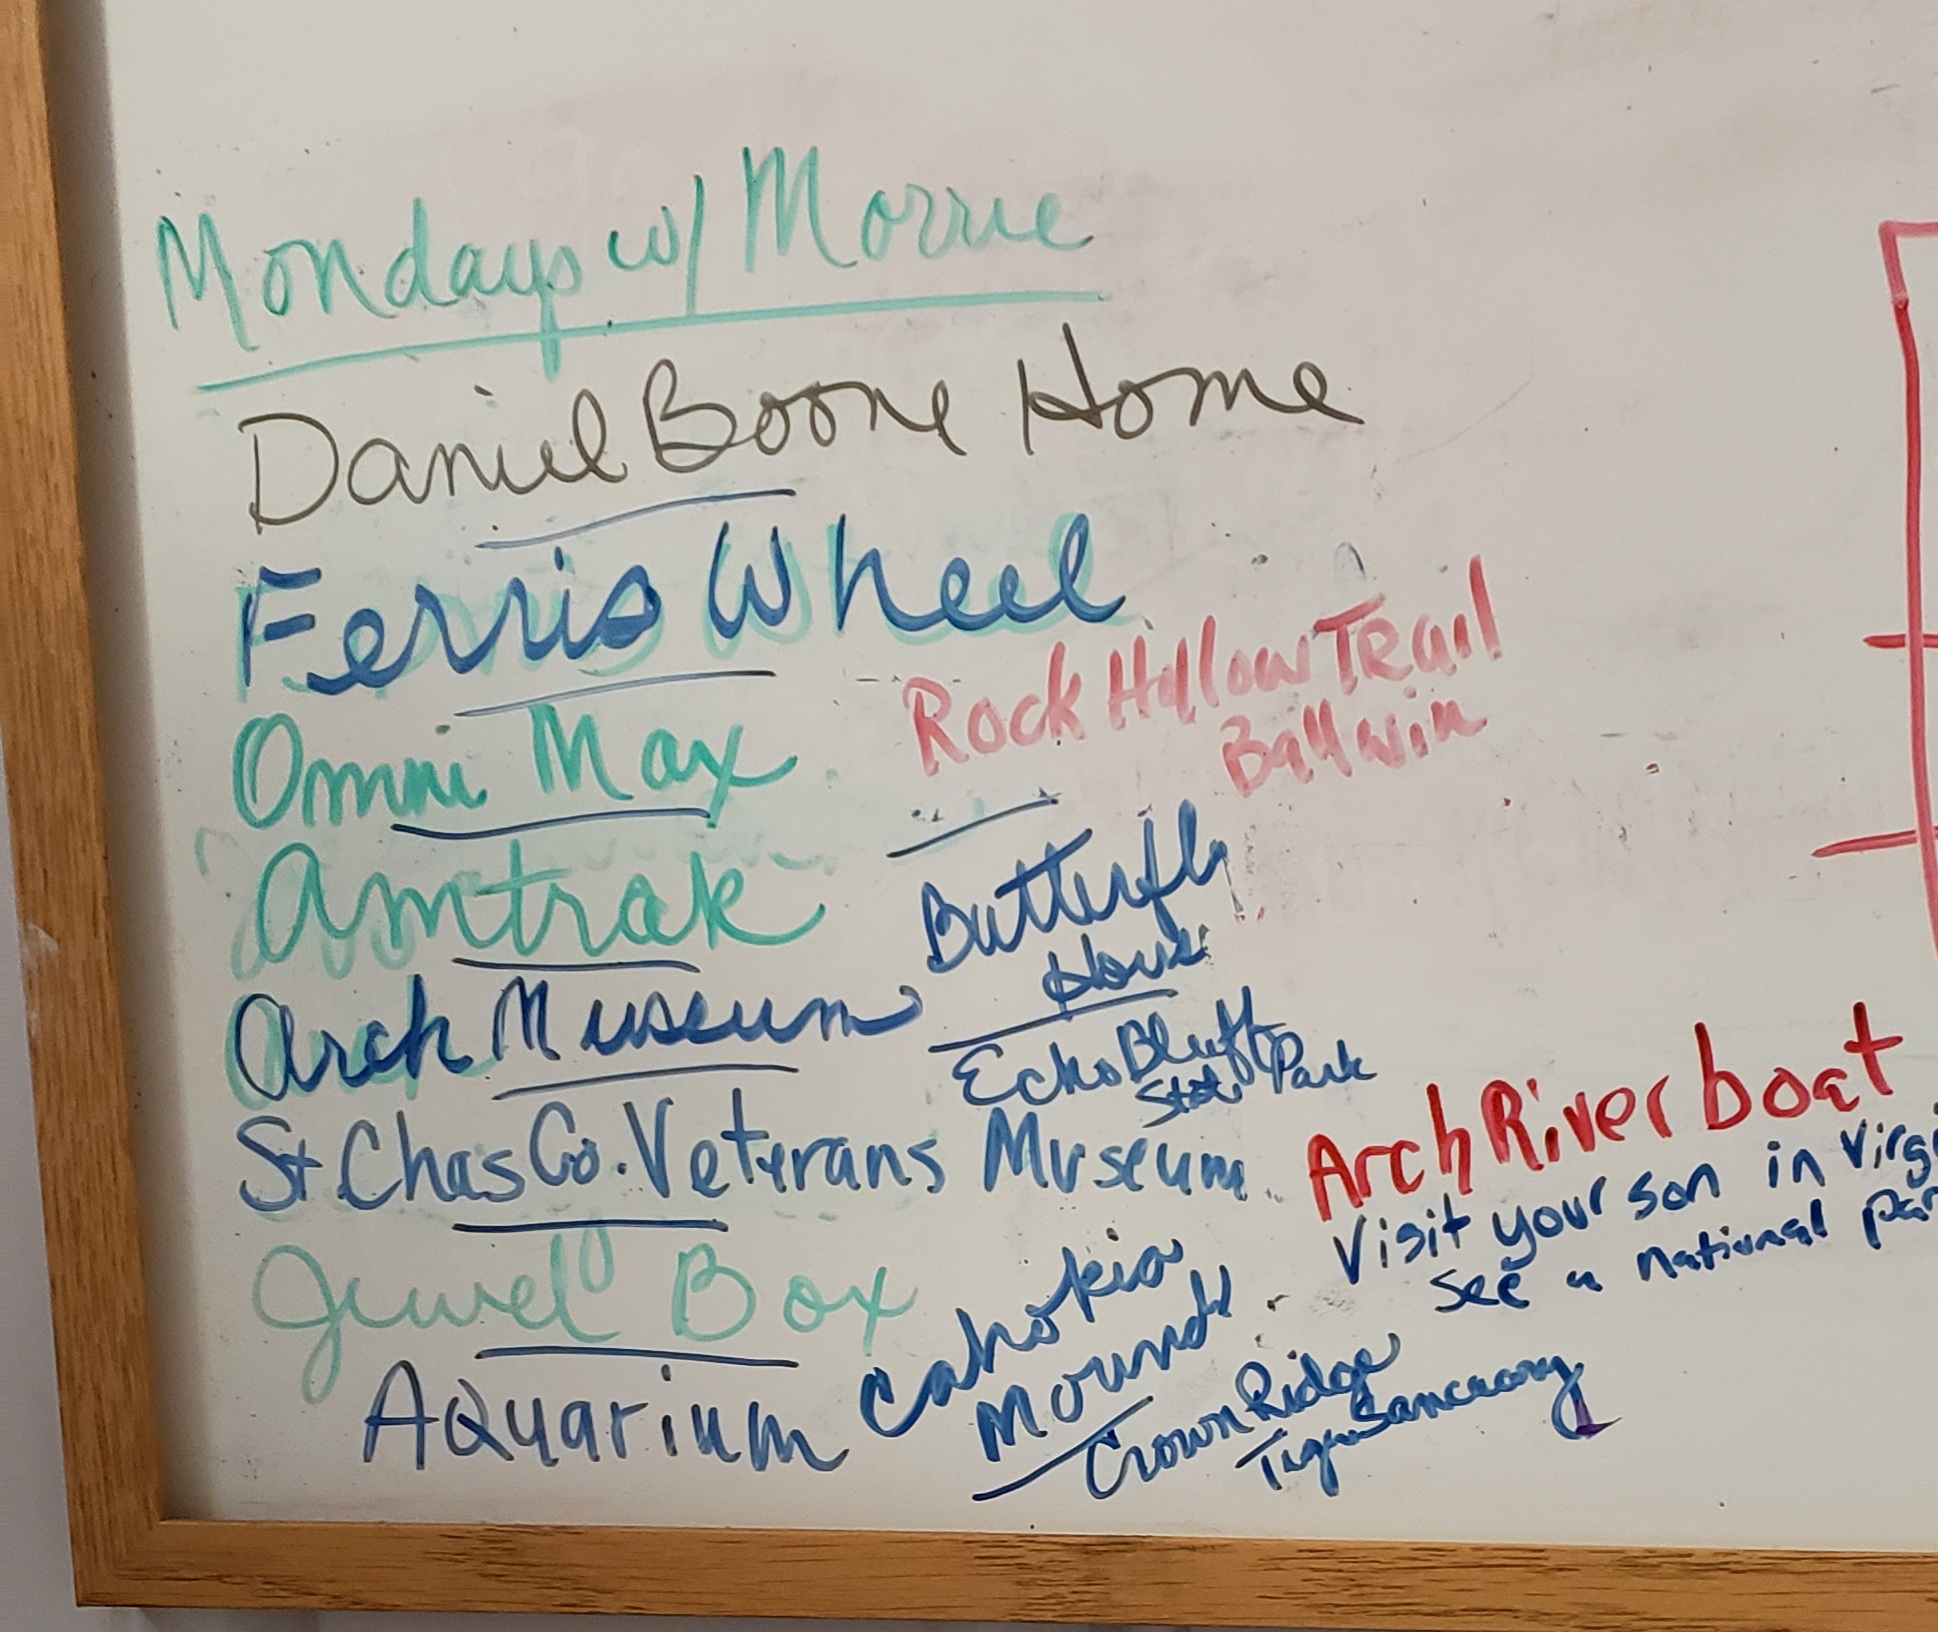 Mondays w/ Morrie
Daniel Boone Home
Ferris Wheel
Omni Max
Amtrak
Arch Museum
St. Chas Co. Veterans Museum
Jewel Box
Aquarium
Rock Hollow Trail
Ballwin
Butterfly
House
Echo Bluff
State Park
Cahokia
Mounds
Crown Ridge
Tiger Sancuary
Arch Riverboat
Visit your son in Virgi
see a national par